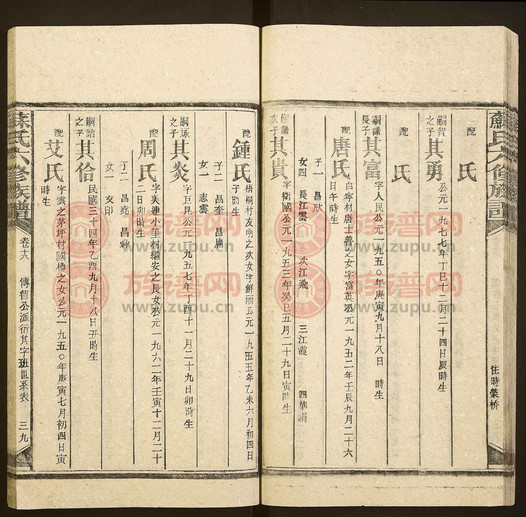 蘇氏六修族譜
住時榮桥
嗣哲之子
其勇
公元一九七七年丁巳十二月二十四日辰時生
配
氏
配
氏
長子
其富
字人昆公元一九五〇年庚寅九月十八日
時生
配
唐氏
白寧村唐士義之女字富英公元一九五二年壬辰九月二十六
日午時生
子一
昌
女四
長江燕
次江燕
三江燕
四
次子
其貴
字衛國公元一九五三年癸巳五月二十九日寅時生
配
鍾氏
梧桐村友
之次女字鮮
公元一九五五年乙未六月初四日
子時生
子二
昌奎
昌庸
女一
志雲
嗣詠之子
其炎
字巨昆公元一九五七年丁酉十一月二十九日卯時生
配
周氏
字美蓮小羊村繼安之長女公元一九六二年壬寅十二月二十
二日卯時生
子二
昌亮
昌輝
女一
友印
嗣詰之子
其佮
民國三十四年乙酉九月十八日丑時生
配
艾氏
字雲之茅坪村國梅之女公元一九五〇年庚寅七月初四日寅
時生
蘇氏六修族譜
卷之六
傳哲公派衍其字班世系表
三九
万族普网
www.zupu.cn
万族普网
www.zupu.cn